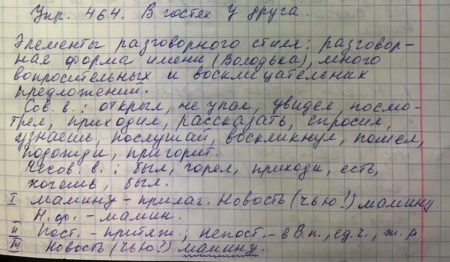 Упр. 464. В гостях у друга.
Элементы разговорного стиля: разговор-
ная форма имени (Володька), много
вопросительных и восклицательных
предложений.
Сов. в.: открыл, не упал, увидел, посмо-
трел, приходил, рассказать, спросил,
узнаешь, послушай, воскликнул, пошёл,
подожди, пригорит.
Несов. в.: был, горел, приходи, есть,
хочешь, был.
I мамину - прилаг. Новость (чью?) мамину
Н.ф. - мамин.
II Пост. - притяж., непост. - в В.п., ед.ч., ж.р
III Новость (чью?) мамину.